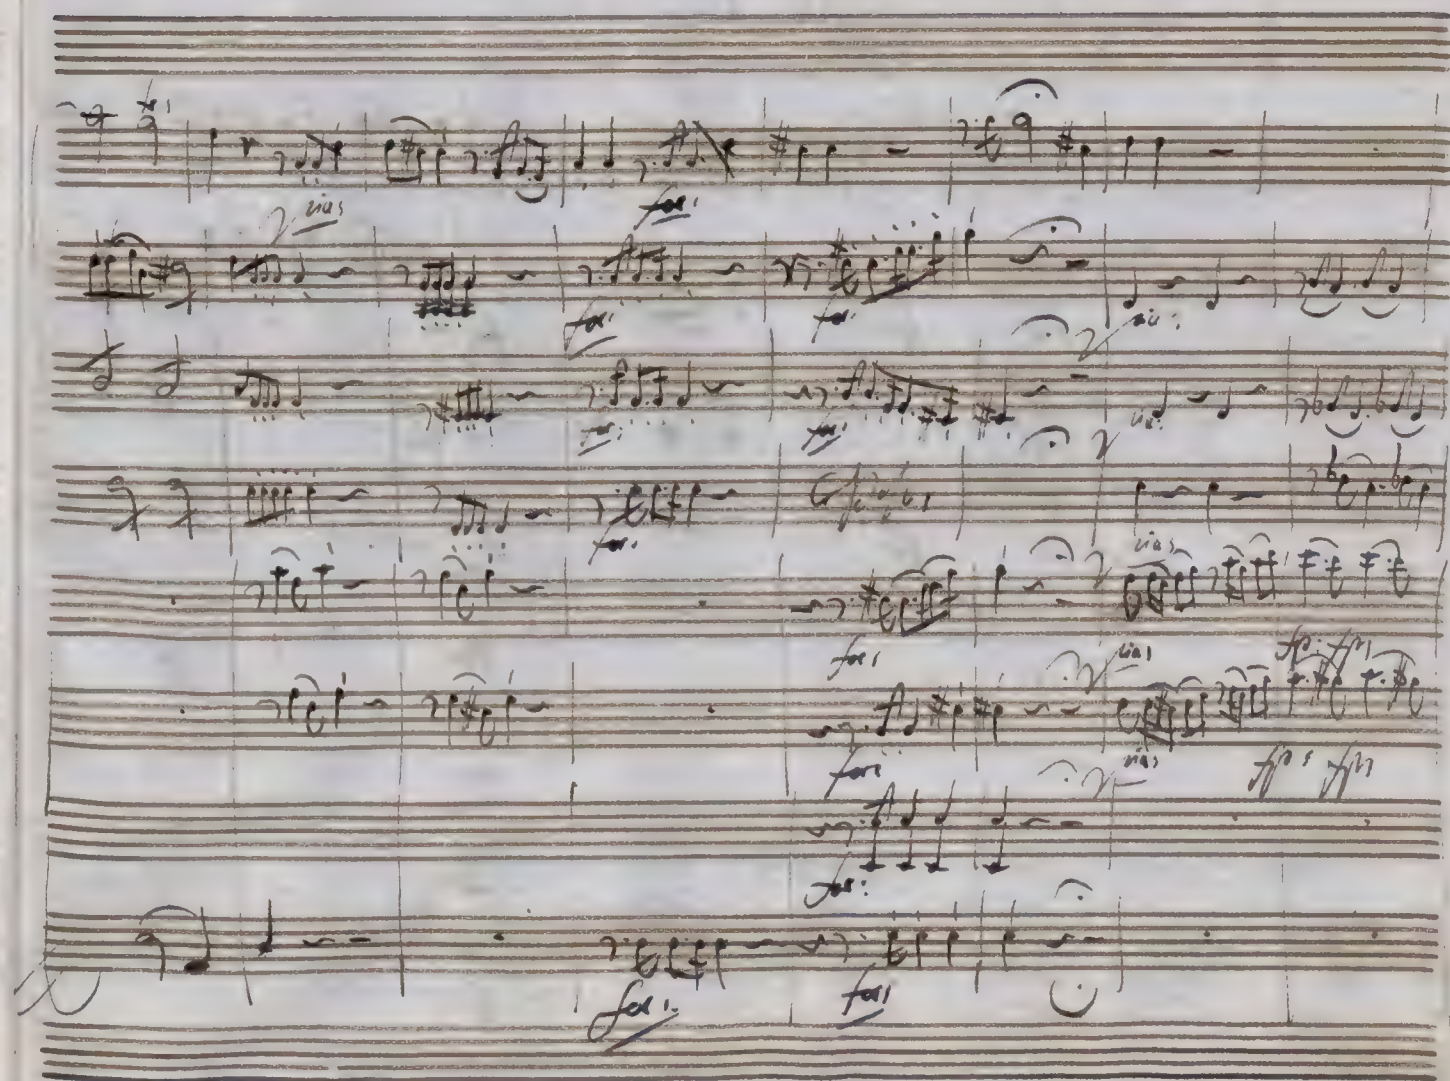 pia:
for:
for: for: pia:
for: for: pia:
for:
pia:
for: pia: fp: fp:
for: pia: fp: fp:
for:
for: for: